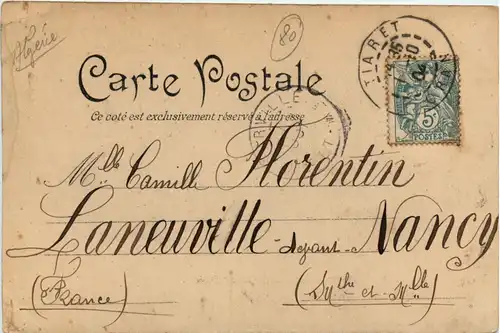 Algérie
80
TIARET
Carte Postale
5
POSTES
Ce coté est exclusivement réservé à l'adresse
Mlle Camille Florentin
Laneuville devant Nancy
(France) (Mthe et Mlle)